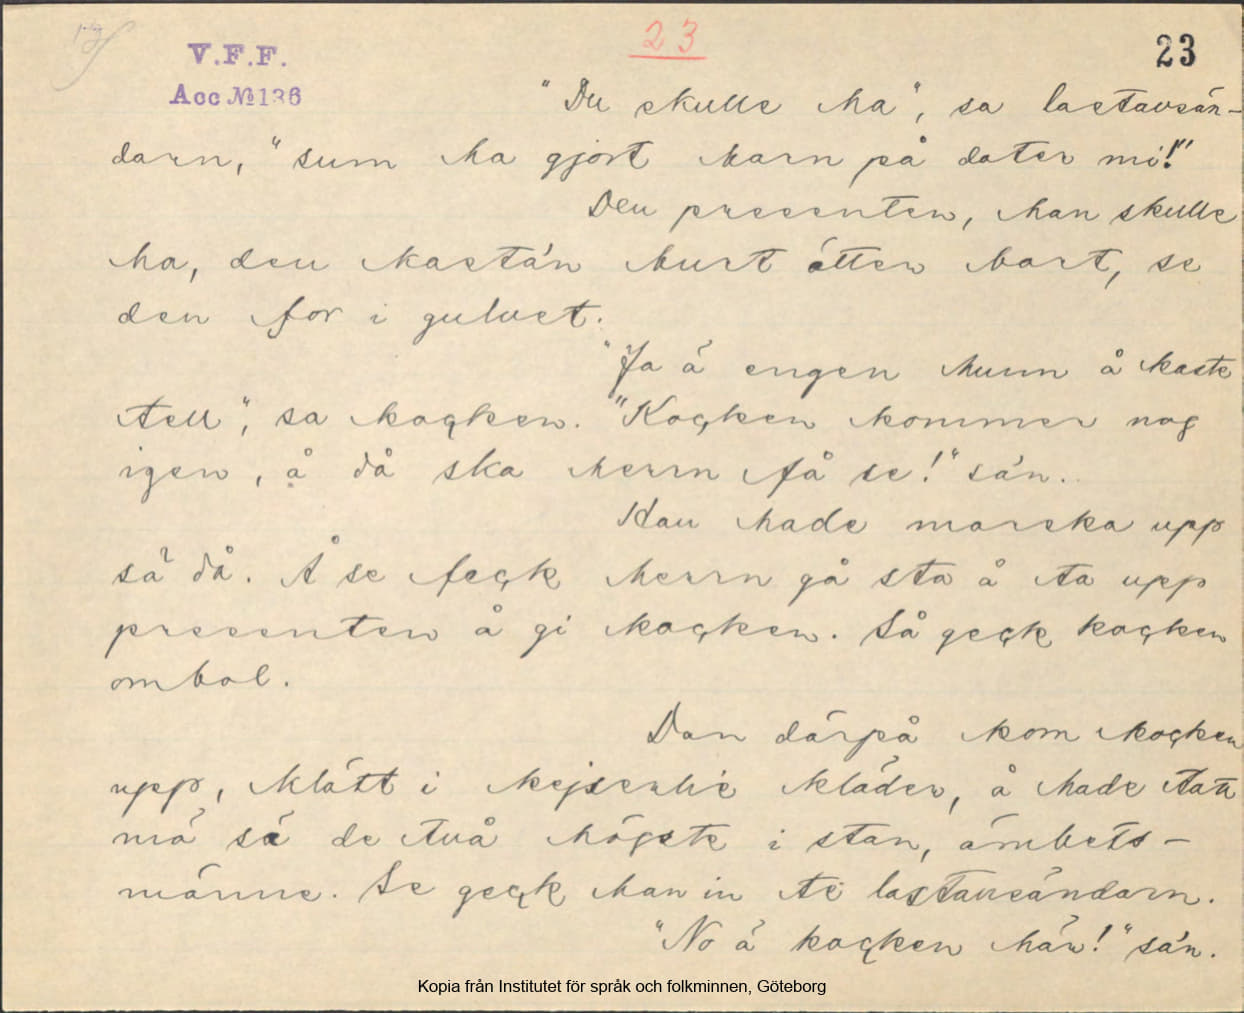 23
23
V.F.F.
Acc № 136
"Du skulle ha", sa lastavsän-
darn, "sum ha gjort barn på dater mi!"
Den presenten, han skulle
ha, den kastá'n burt åtter bort, se
den for i gulvet.
"Ja ä engen hunn å kaste
tell", sa kocken. "Kocken kommer nog
igen, å då ska herrn få se!" sä'n.
Han hade morska upp
sä då. Å se feck herrn gå sta å ta upp
presenten å gi kocken. Så geck kocken
ombol.
Dan därpå kom kocken
upp, klätt i kejserlie kläder, å hade tatt
mä sä de två högste i stan, ämbets-
männe. Se geck han in te lastavsändarn.
"No ä kocken här!" sä'n.
Kopia från Institutet för språk och folkminnen, Göteborg